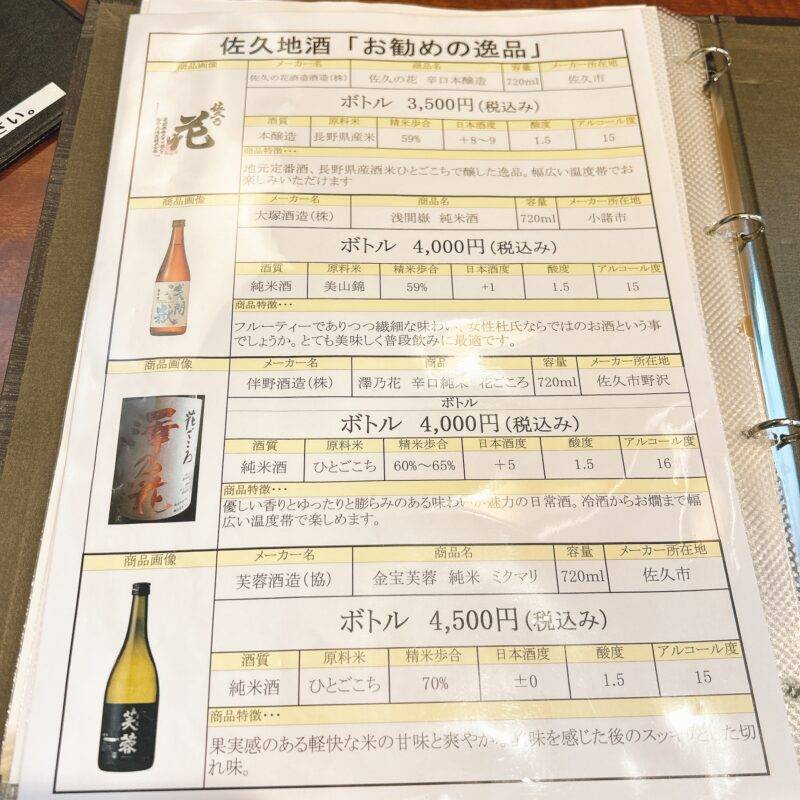 さい。
佐久地酒「お勧めの逸品」
商品画像 メーカー名 商品名 容量 メーカー所在地
佐久の花酒造酒造(株) 佐久の花 辛口本醸造 720ml 佐久市
ボトル 3,500円(税込み)
酒質 原料米 精米歩合 日本酒度 酸度 アルコール度
本醸造 長野県産米 59% +8~9 1.5 15
商品特徴・・・
地元定番酒、長野県産酒米ひとごこちで醸した逸品。幅広い温度帯でお
楽しみいただけます
佐久乃
花
商品画像 メーカー名 商品名 容量 メーカー所在地
大塚酒造(株) 浅間嶽 純米酒 720ml 小諸市
ボトル 4,000円(税込み)
酒質 原料米 精米歩合 日本酒度 酸度 アルコール度
純米酒 美山錦 59% +1 1.5 15
商品特徴・・・
フルーティーでありつつ繊細な味わい、女性杜氏ならではのお酒という事
でしょうか。とても美味しく普段飲みに最適です。
浅間嶽
商品画像 メーカー名 商品 容量 メーカー所在地
伴野酒造(株) 澤乃花 辛口純米 花ごころ 720ml 佐久市野沢
ボトル
ボトル 4,000円(税込み)
酒質 原料米 精米歩合 日本酒度 酸度 アルコール度
純米酒 ひとごこち 60%~65% +5 1.5 16
商品特徴・・・
優しい香りとゆったりと膨らみのある味わいが魅力の日常酒。冷酒からお燗まで幅
広い温度帯で楽しめます。
花ごころ
澤乃花
商品画像 メーカー名 商品名 容量 メーカー所在地
芙蓉酒造(協) 金宝芙蓉 純米 ミクマリ 720ml 佐久市
ボトル 4,500円(税込み)
酒質 原料米 精米歩合 日本酒度 酸度 アルコール度
純米酒 ひとごこち 70% ±0 1.5 15
商品特徴・・・
果実感のある軽快な米の甘味と爽やか 味を感じた後のスッキリとした切
れ味。
芙蓉